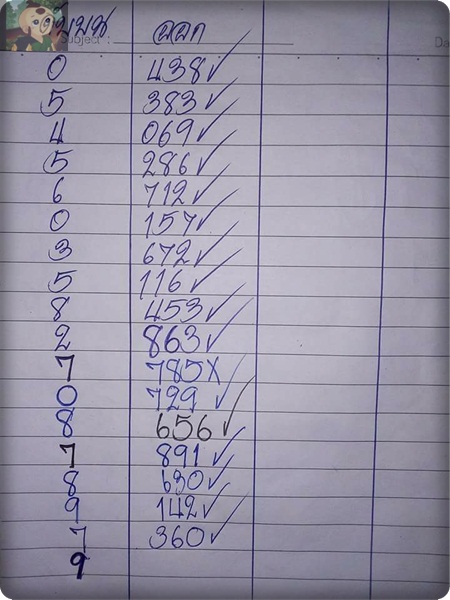 ออก
ubject :
Da
0 438 ✓
5 383 ✓
4 069 ✓
5 286 ✓
6 712 ✓
0 157 ✓
3 672 ✓
5 116 ✓
8 453 ✓
2 863 ✓
7 785 X
0 729 ✓
8 656 ✓
7 891 ✓
8 630 ✓
9 142 ✓
7 360 ✓
9